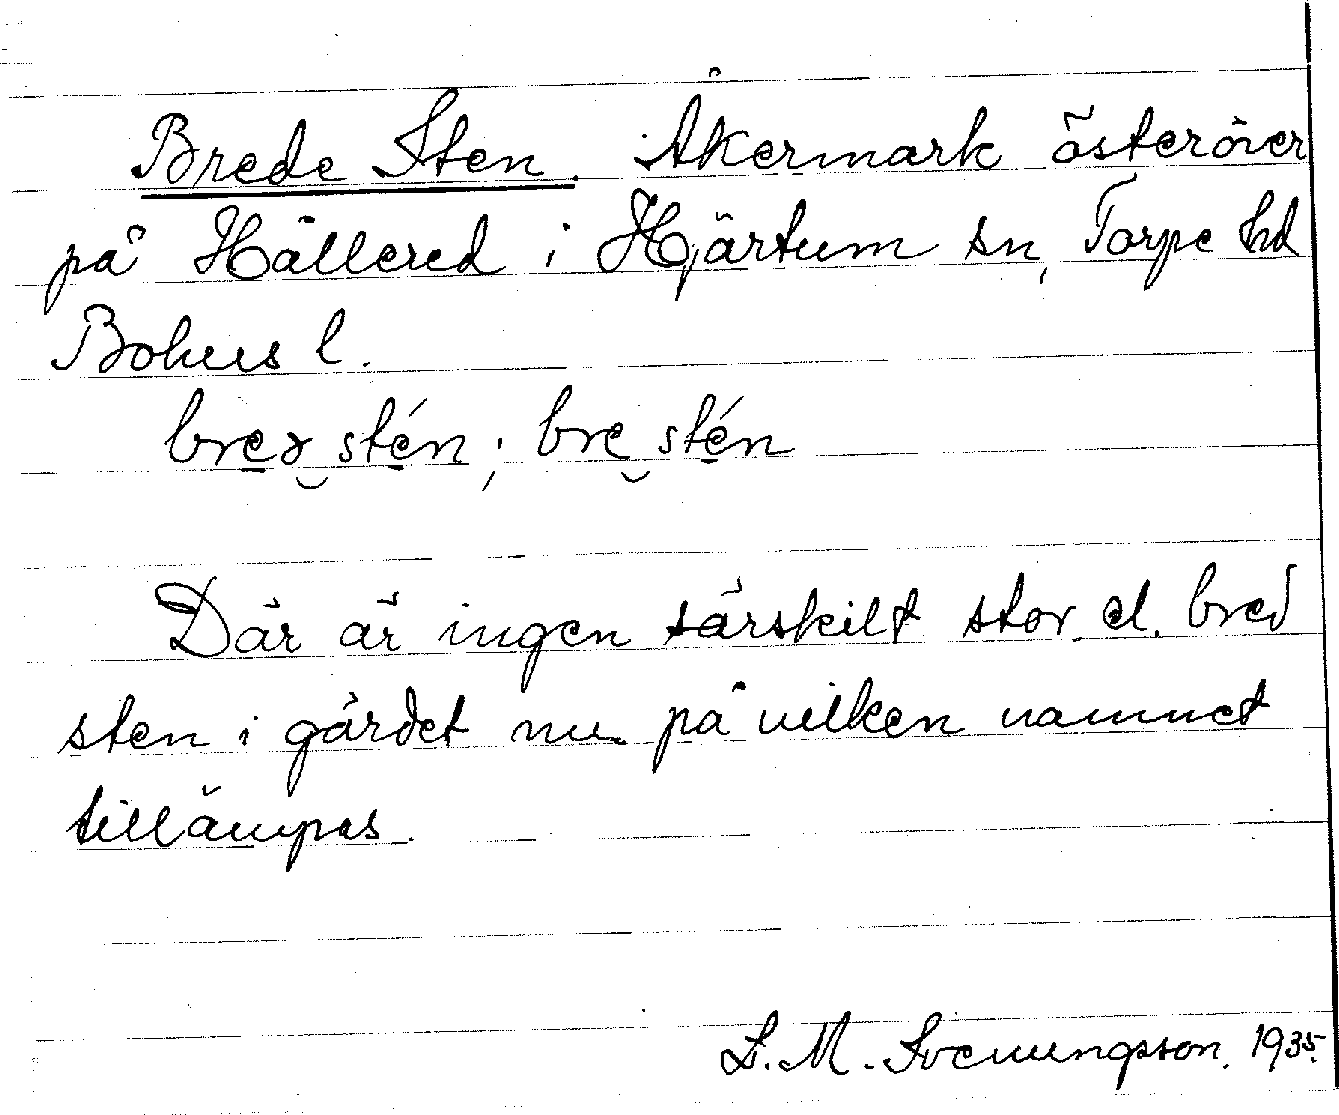 Brede Sten. Åkermark österöver
på Hällered i Hjärtum sn, Torpe hd
Bohus l.
breɾ‿stén; bre‿stén
Där är ingen särskilt stor el. bred
sten i gärdet nu på vilken namnet
tillämpas.
S. M. Svenungsson. 1935.